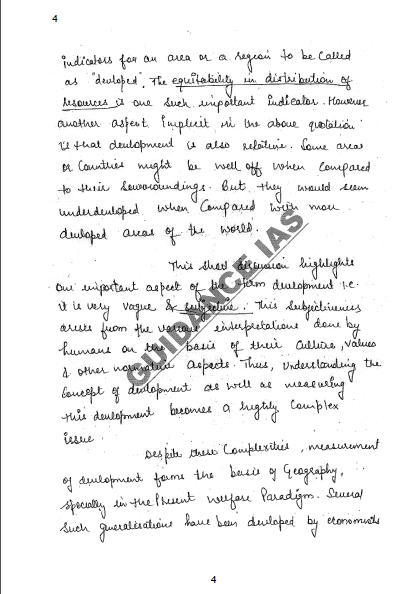 4
indicators for an area or a region to be called
as 'devloped'. The equitability in distribution of
resources is one such important indicator. However
another aspect implicit in the above quotation
is that development is also relative. Some areas
or Countries might be well off when compared
to their Sourroundings. But they would seem
underdevloped when Compared with more
devloped areas of the world.
This short discussion highlights
one important aspect of the term development i.e.
it is very vague & subjective. This Subjectiveness
arises from the various interpretations done by
humans on the basis of their Culture, values
& other normative aspects. Thus, Understanding the
Concept of devlopment as well as measuring
this devlopment becomes a highly Complex
issue.
Despite these Complexities, measurement
of devlopment forms the basis of Geography,
specially in the Present welfare Paradigm. Several
Such generalisations have been devloped by economists
GUIDANCE IAS
4